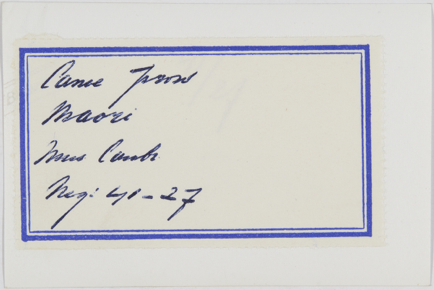 Canoe prow
Maori
Mus Camb
Neg: 48-27